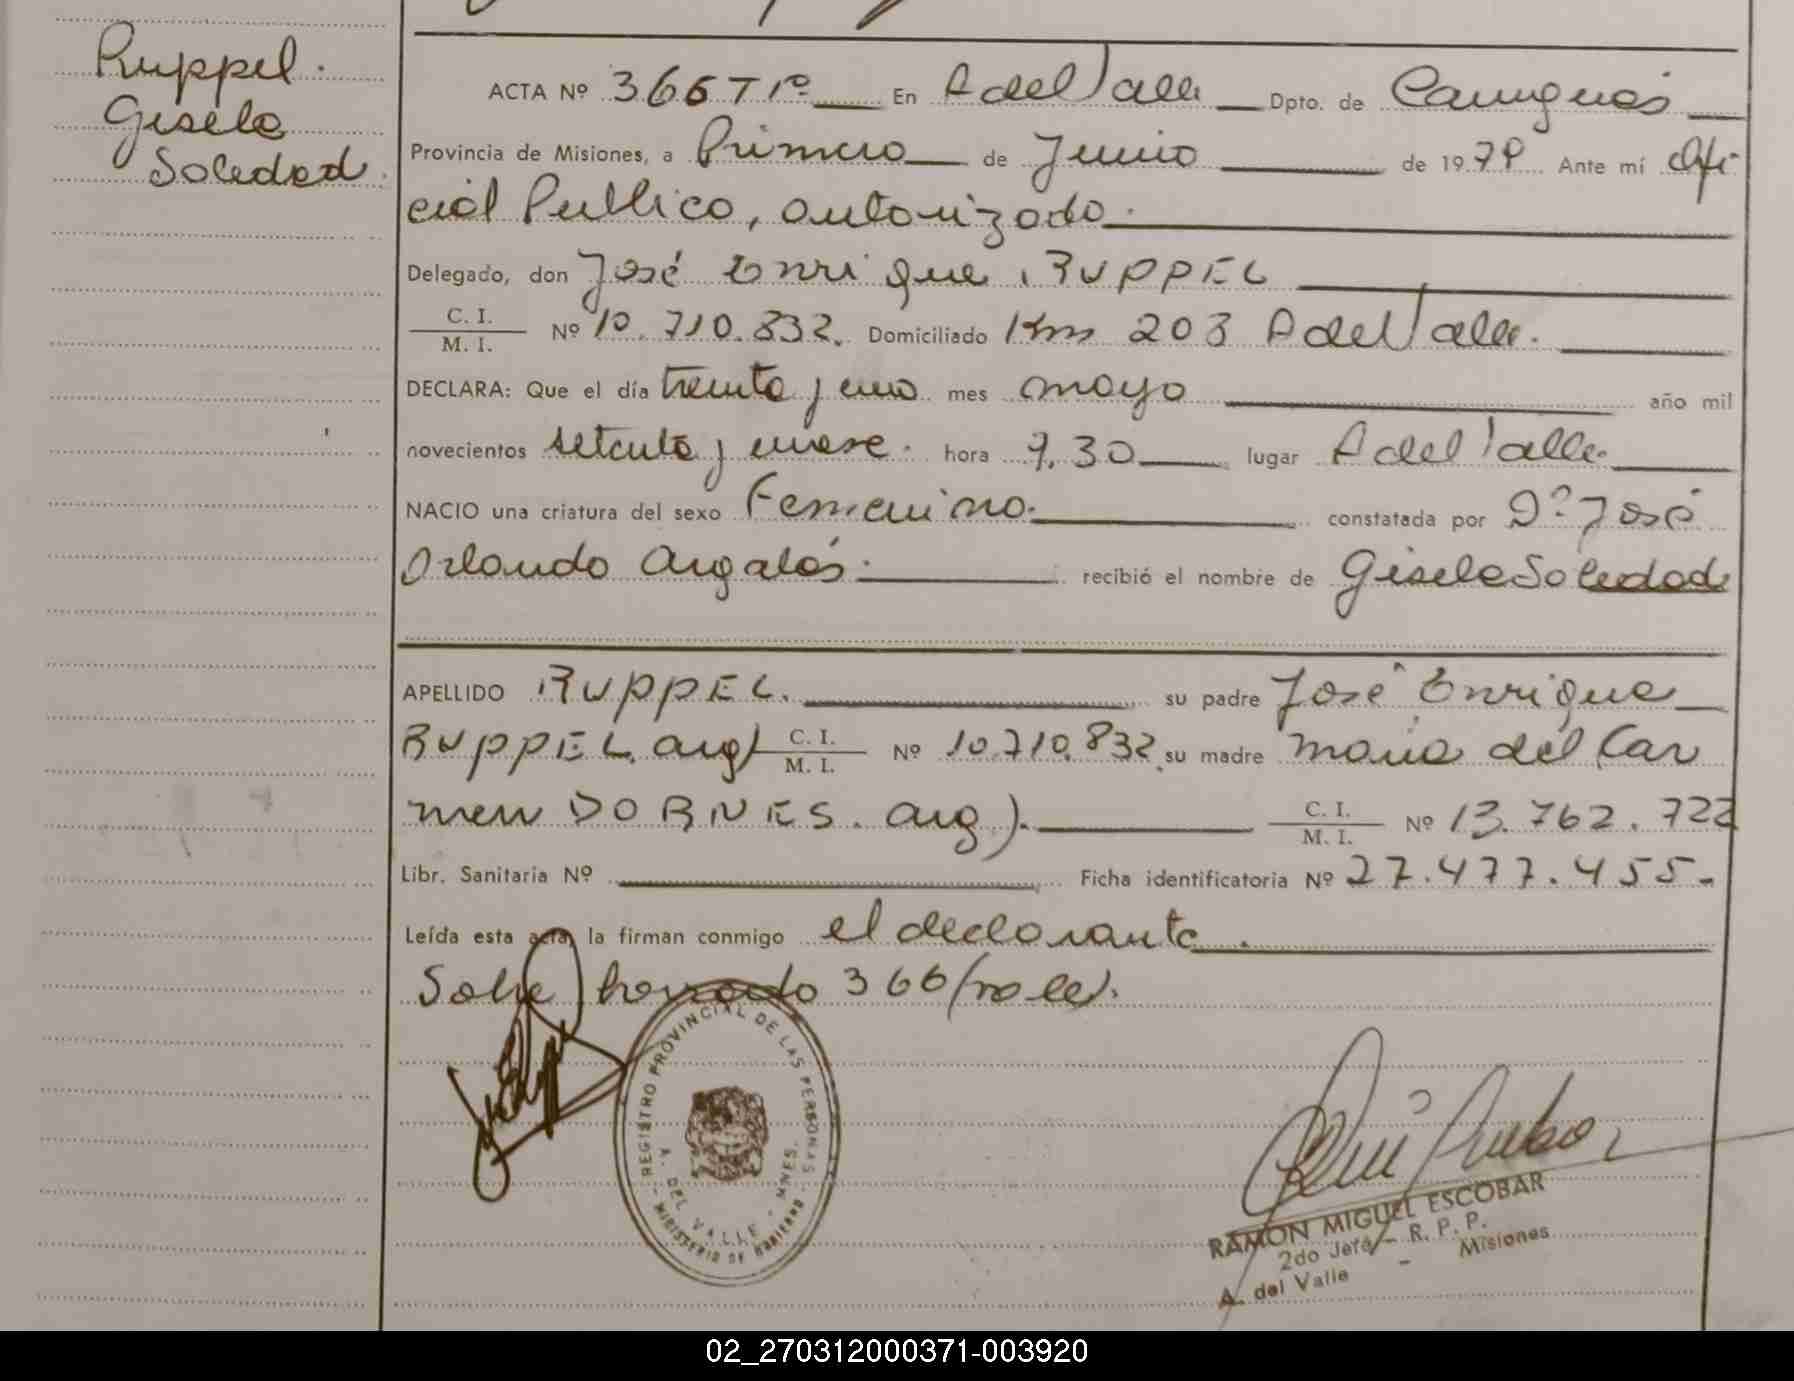 Ruppel.
Gisela
Soledad.
ACTA Nº 366 T 1º En A del Valle Dpto. de Cainguás
Provincia de Misiones, a Primero de Junio de 1979 Ante mí Ofi-
cial Publico, autorizado.
Delegado, don José Enrique RUPPEL
C. I.
M. I. Nº 10.710.832. Domiciliado Km 203 A del Valle.
DECLARA: Que el día treinta y uno mes mayo año mil
novecientos setenta y nueve. hora 7,30 lugar A del Valle.
NACIO una criatura del sexo Femenino. constatada por Dº José
Orlando Argalás. recibió el nombre de Gisela Soledad
APELLIDO RUPPEL. su padre José Enrique
RUPPEL. arg) C. I.
M. I. Nº 10.710.832. su madre Maria del Car
men DORNES. arg.). C. I.
M. I. Nº 13.762.722
Libr. Sanitaria Nº Ficha identificatoria Nº 27.477.455.-
Leída esta acta, la firman conmigo el declarante.
Sobre borrado 366 (vale).
REGISTRO PROVINCIAL DE LAS PERSONAS
A. DEL VALLE - MNES.
MINISTERIO DE GOBIERNO
RAMON MIGUEL ESCOBAR
2do Jefe - R. P. P.
A. del Valle - Misiones
02_270312000371-003920